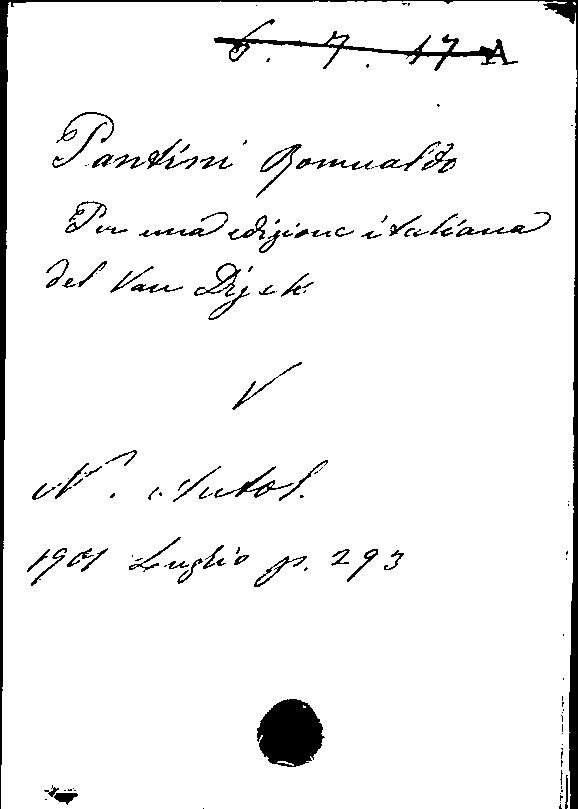 6. 7. 17 A
Pantini Romualdo
Per una edizione italiana
del Van Dijck
V
N. Antol.
1901 Luglio p. 293